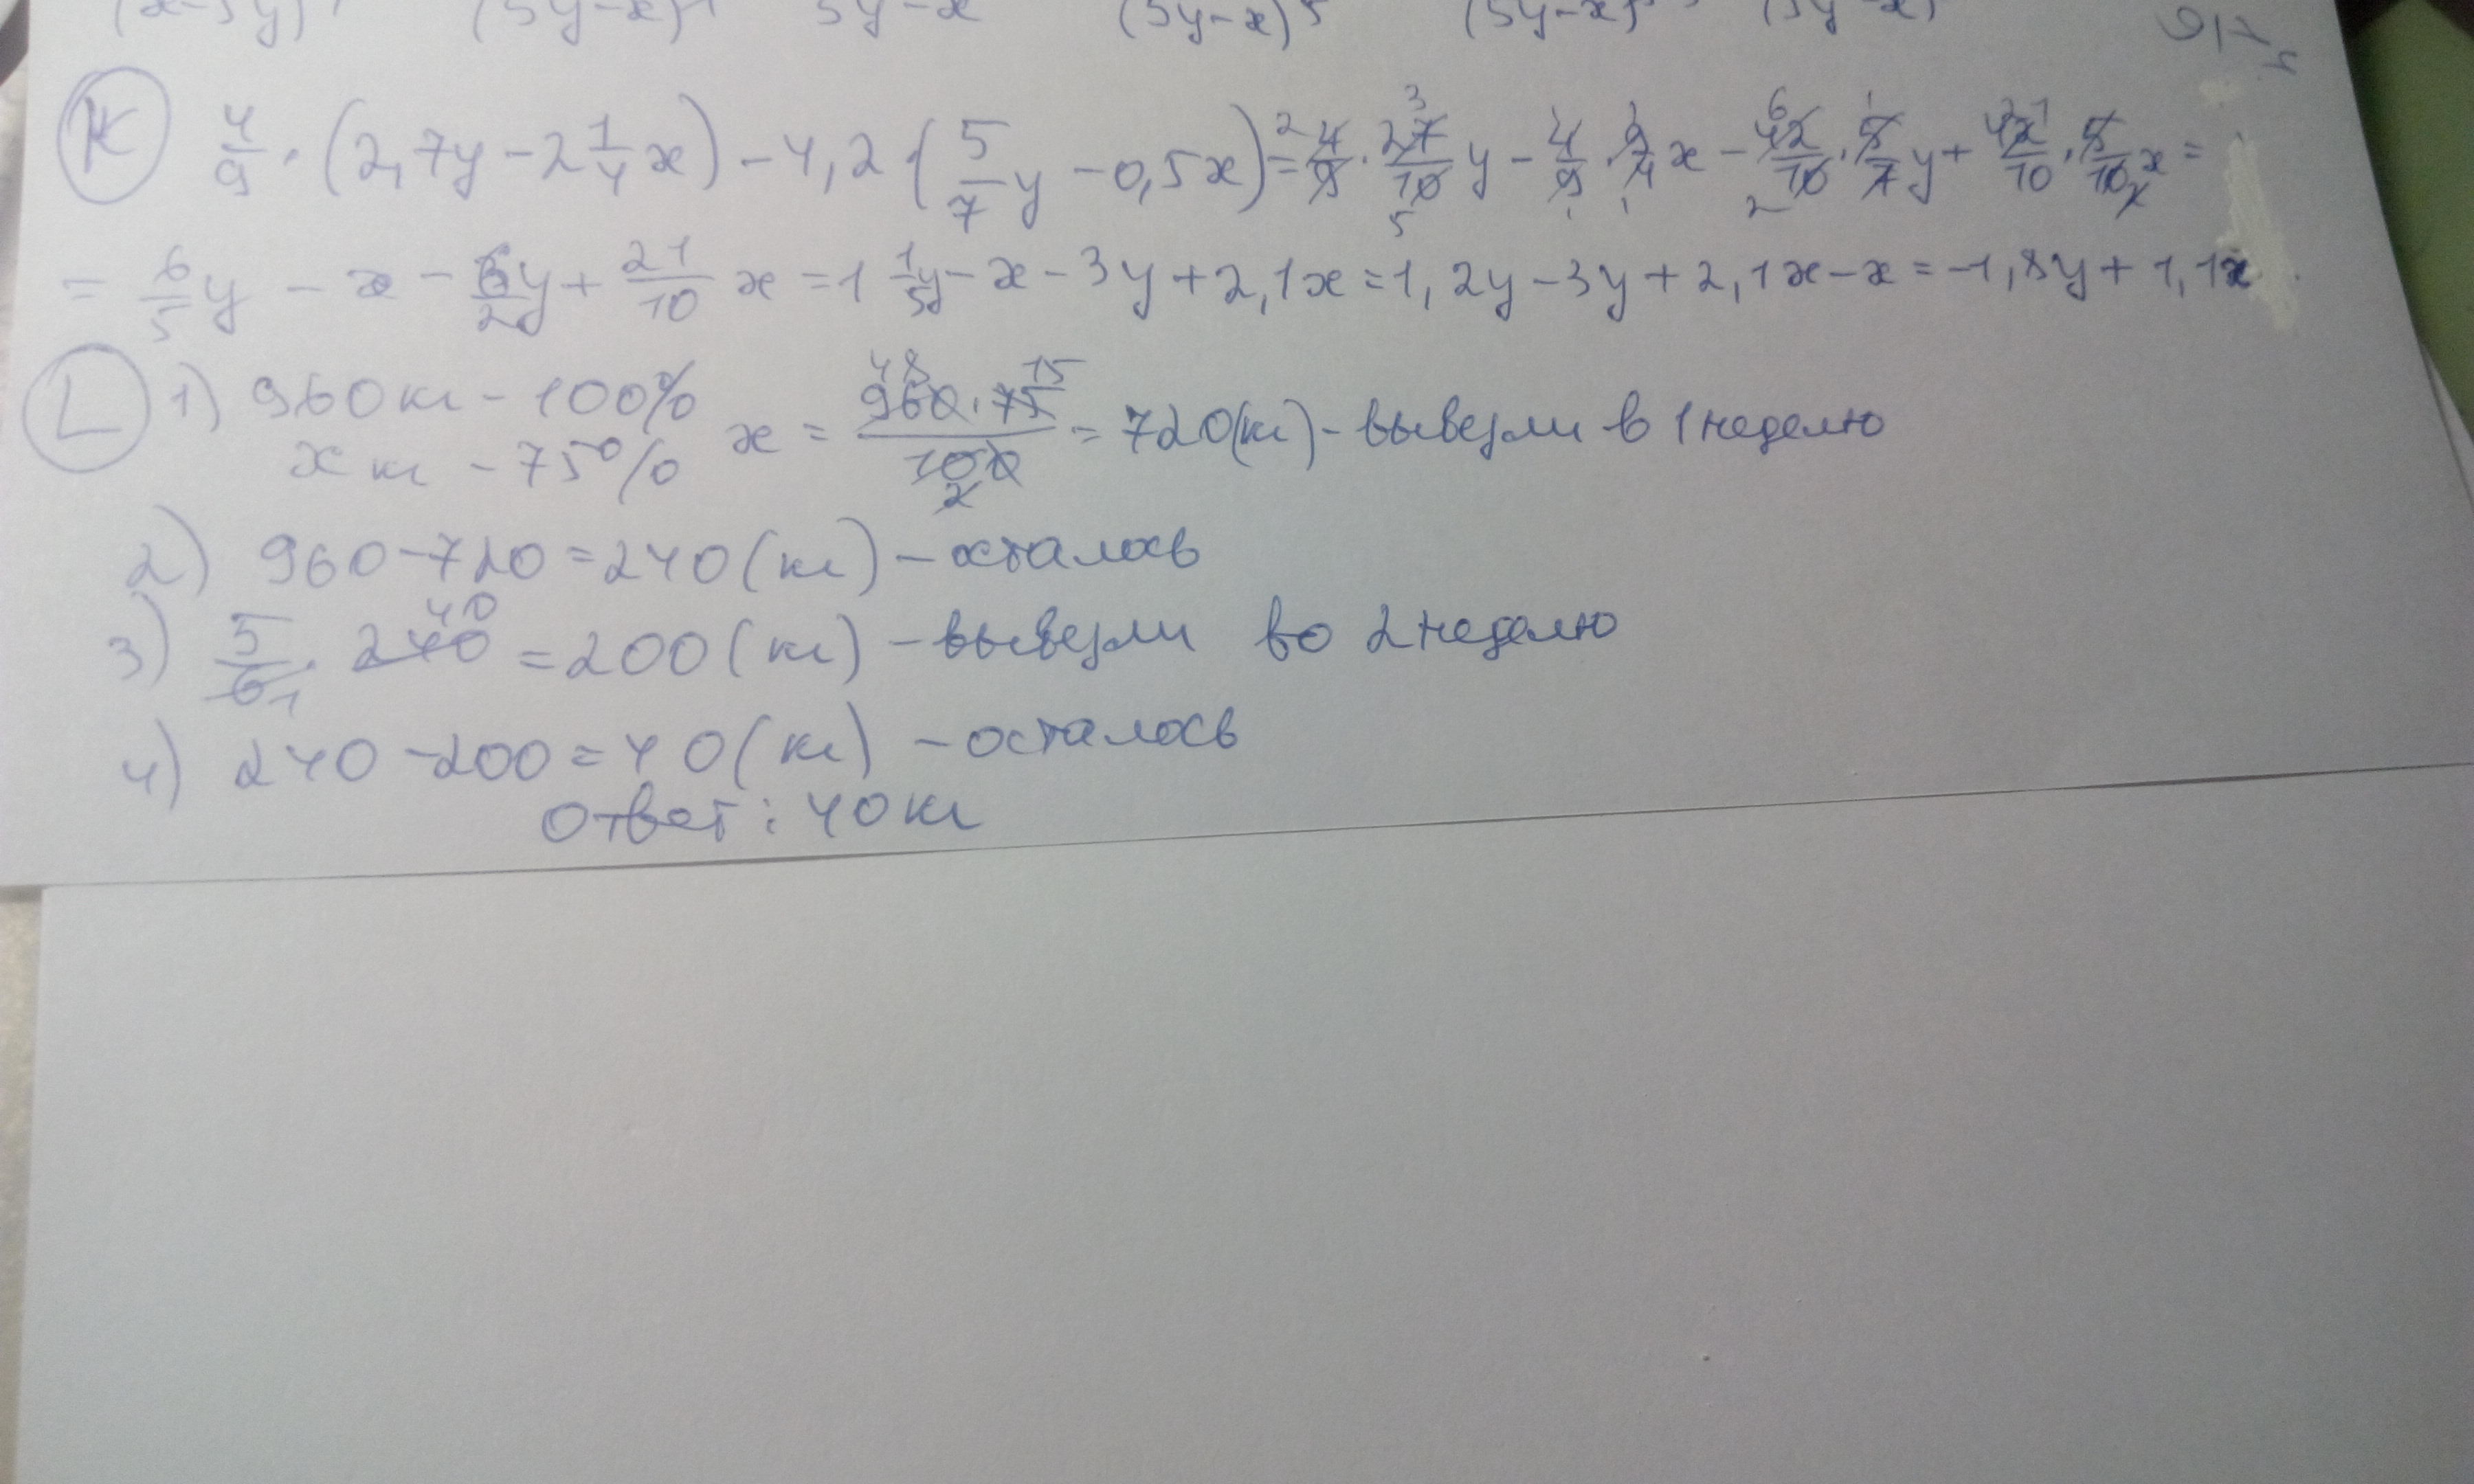 (x-5y) (5y-x) 5y-x (5y-x)⁵ (5y-x) (5y-x)
K 4/9 · (2,7y - 2 1/4 x) - 4,2 · (5/7 y - 0,5x) = 4/9 · 27/10 y - 4/9 · 9/4 x - 42/10 · 5/7 y + 42/10 · 5/10 x =
= 6/5 y - x - 6/2 y + 21/10 x = 1 1/5 y - x - 3y + 2,1x = 1,2y - 3y + 2,1x - x = -1,8y + 1,1x
L 1) 960 кг - 100%
x кг - 75% x = 960·75/100 = 720(кг) - вывезли в 1 неделю
2) 960-720=240(кг) - осталось
3) 5/6 · 240 = 200(кг) - вывезли во 2 неделю
4) 240-200=40(кг) - осталось
Ответ: 40 кг